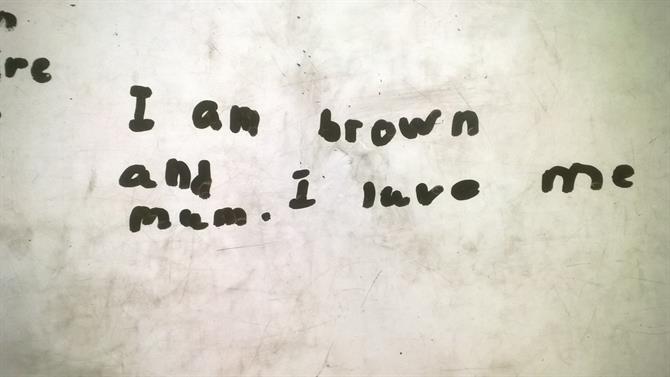 I am brown
and i lave me
mum.